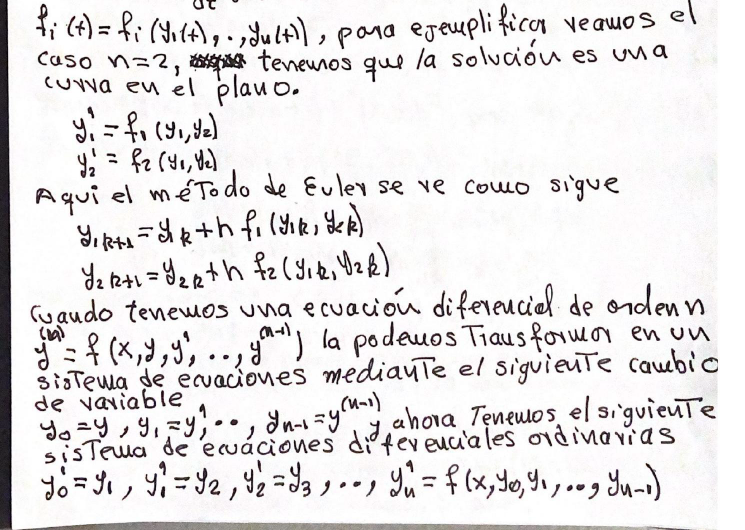 dt
f_i(t) = f_i(y_1(t), ., y_n(t)), para ejemplificar veamos el
caso n=2, tenemos que la solución es una
curva en el plano.
y_1' = f_1(y_1, y_2)
y_2' = f_2(y_1, y_2)
Aqui el método de Euler se ve como sigue
y_{1k+1} = y_k + h f_1(y_{1k}, y_{2k})
y_{2k+1} = y_{2k} + h f_2(y_{1k}, y_{2k})
Cuando tenemos una ecuación diferencial de orden n
y^{(n)} = f(x, y, y', .., y^{(n-1)}) la podemos Transformar en un
sisTema de ecuaciones medianTe el siguienTe cambio
de variable
y_0 = y, y_1 = y', .., y_{n-1} = y^{(n-1)} y ahora Tenemos el siguienTe
sisTema de ecuaciones diferenciales ordinarias
y_0' = y_1, y_1' = y_2, y_2' = y_3, .., y_n' = f(x, y_0, y_1, ..., y_{n-1})